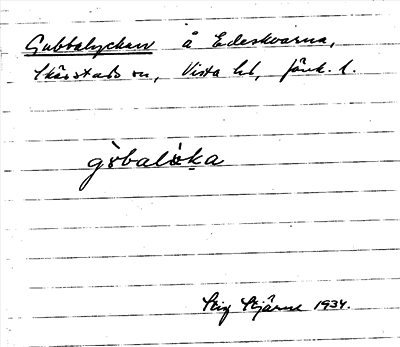 Gubbalyckan å Edeskvarna,
Skärstads sn, Vista hd, Jönk. l.
gòbalὰka
Stig Stjärne 1934.